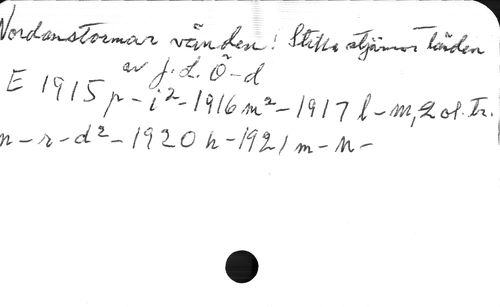 Nordanstormar vänden! Stilla stjärnor länden
av J. L. Ö-d
E 1915 p - i² - 1916 m² - 1917 l - m, 2 ol. tr.
n - r - d² - 1920 h - 1921 m - n -